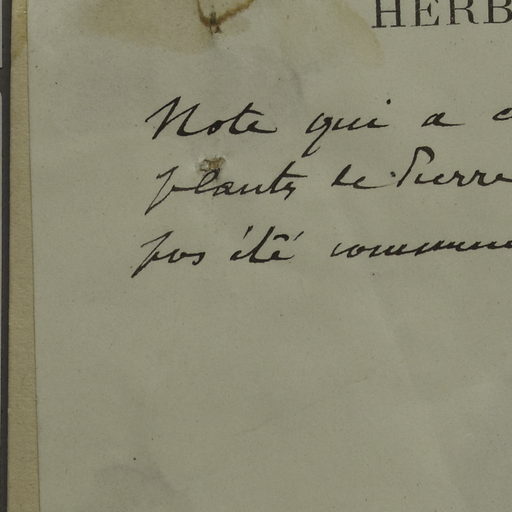 HERB
Note qui a c
plantes de Pierre
pas été commun